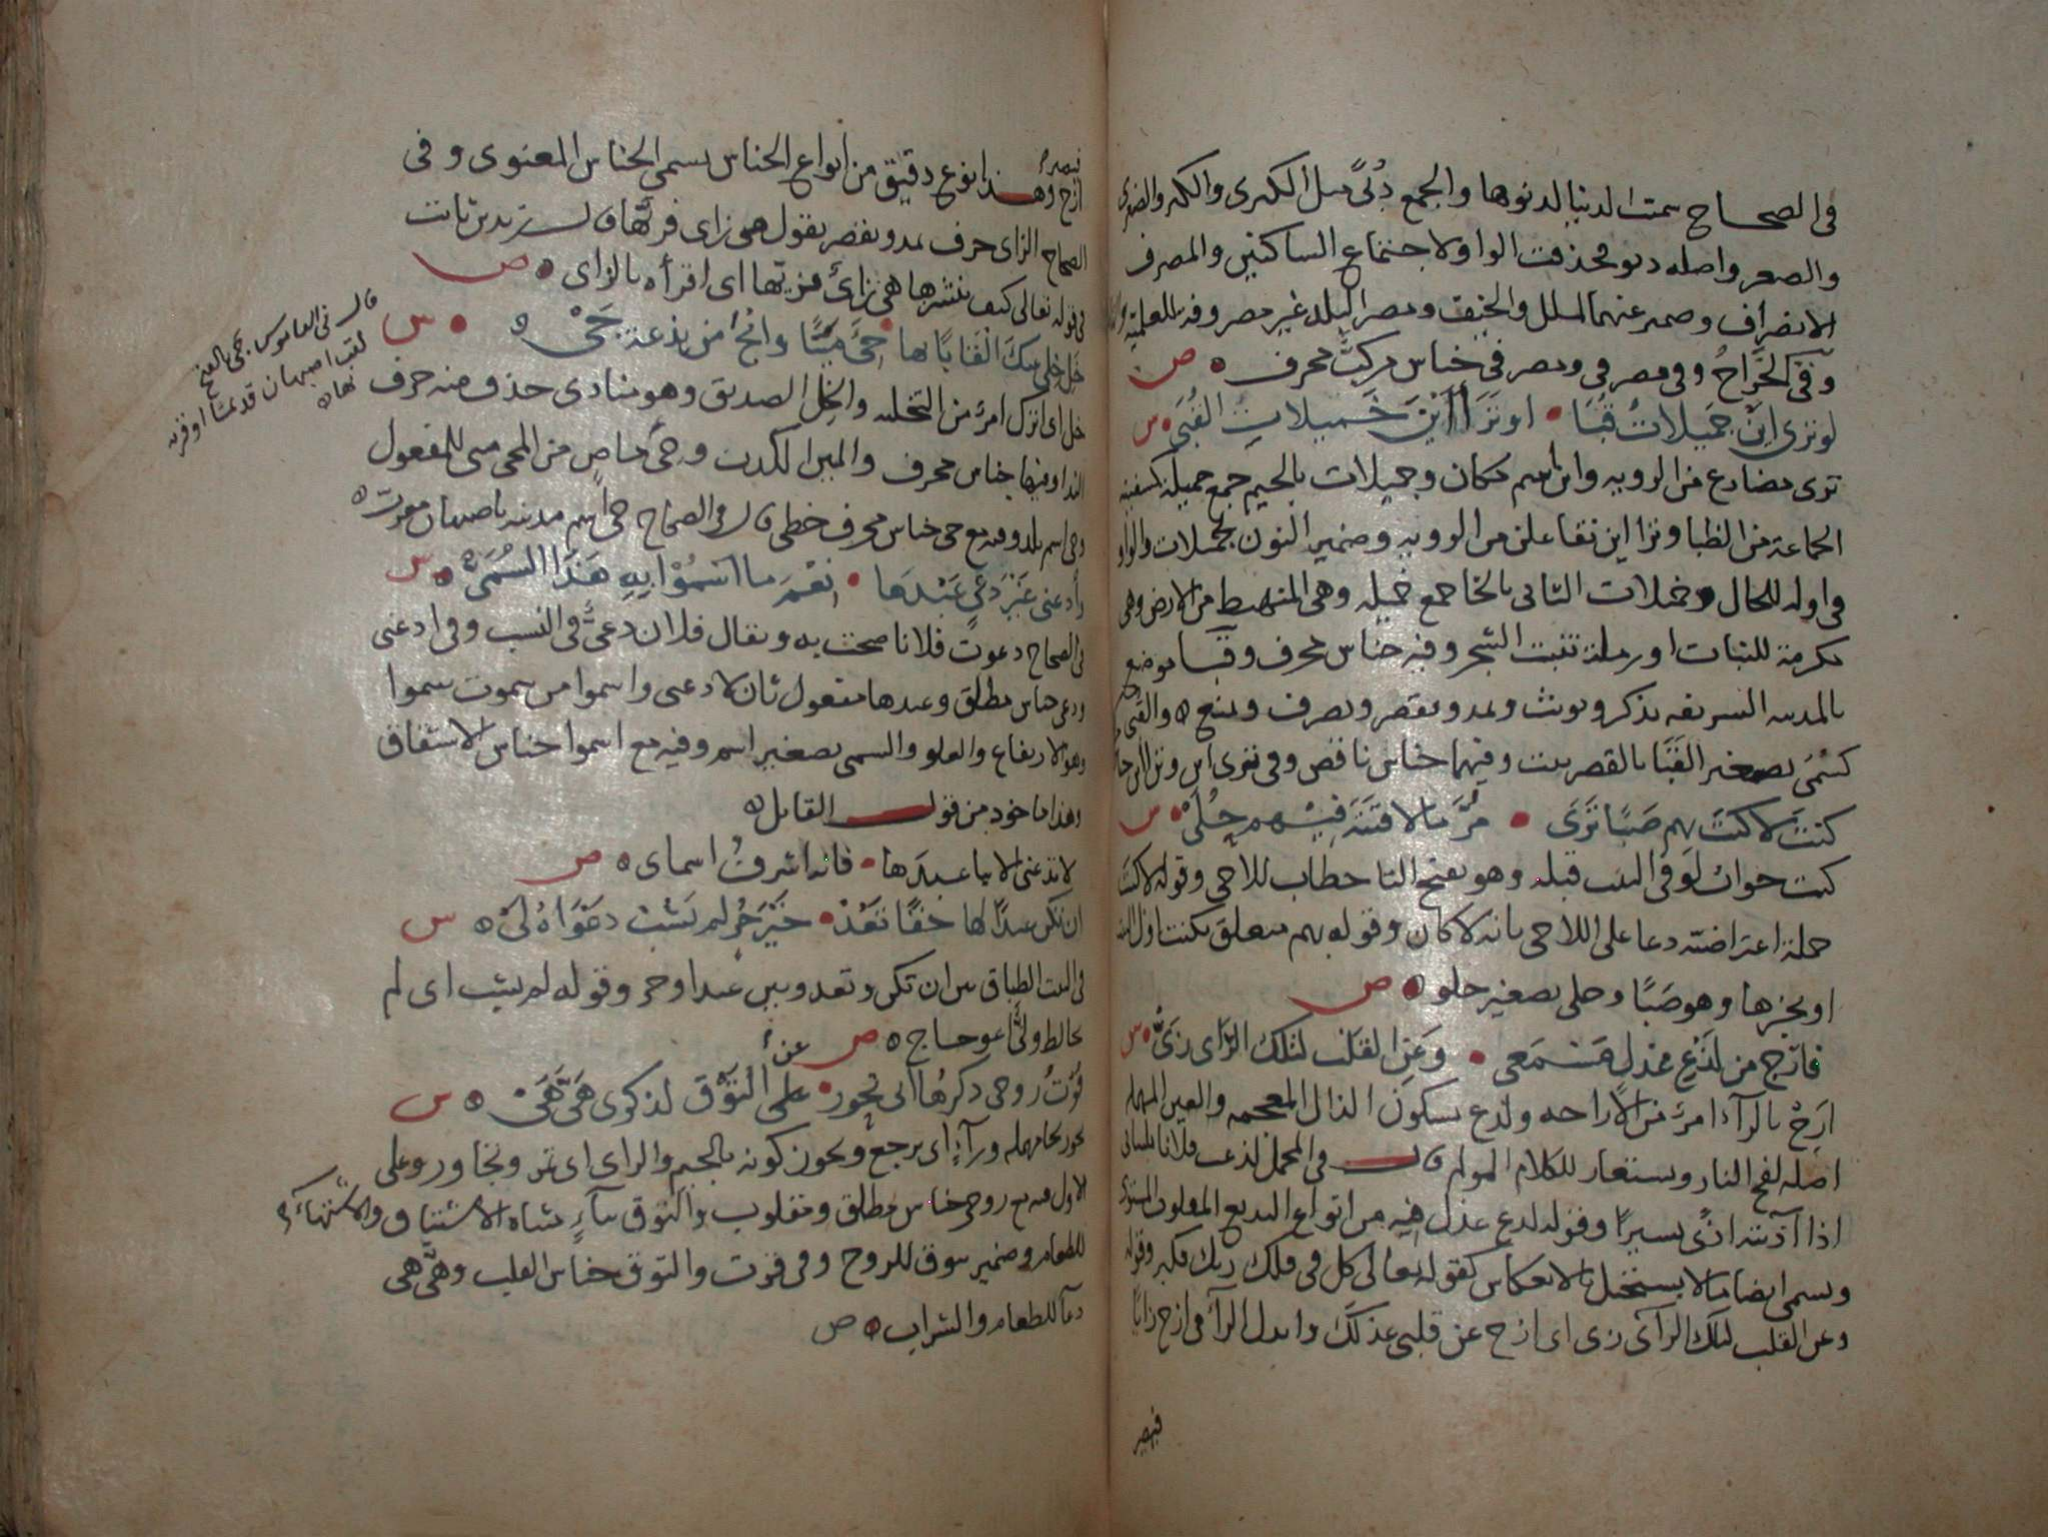 في الصحاح سمت الدنيا لدنوها والجمع دُنًى مثل الكبرى والكبر والصغرى
والصغر واصله دنو فحذفت الواو لاجتماع الساكنين والمصرف
الانصراف وضمير عنهما للملل والخيف ومصر البلد غير مصروفه للعلمية
وفي مصر في ومصر في جناس مركب محرف ص
لو ترى اين جميلات قبا • او تراأين خميلات القبي • س
ترى مضارع من الرويه واين اسم مكان وجميلات بالجيم جمع جميلة كسفينه
الجماعة من الظبا وتراأين تفاعلن من الرويه وضمير النون لجميلات والواو
في اوله للحال وخميلات الثاني بالخا جمع خميله وهي المنهبط من الارض وهي
مكرمة للنبات او رملة تنبت الشجر وفيه جناس محرف وقبا موضع
بالمدينه الشريفه يذكر ويونث ويمد ويقصر ويصرف ويمنع والقبي
كسمي تصغير القبا بالقصر نبت وفيهما جناس ناقص وفي ترى اين وتراأين
كنت لا كنت بهم صبا ترى • مرّ ما لاقيته فيهم حلي • س
كنت جواب لو في البيت قبله وهو بفتح التا خطاب للاحي وقوله لا كنت
جملة اعتراضيه دعا على اللاحي بانه لا كان وقوله بهم متعلق بكنت
او بخبرها وهو صبًا وحلي تصغير حلو ص
فارح من لذع عذل مسمعي • وعن القلب لتلك الراي زي • س
ارح بالرآء امر من الاراحه ولذع بسكون الذال المعجمه والعين المهمله
اصله لفح النار ويستعار للكلام المولم قال في المجمل لذعت فلانا بلساني
اذا آذيته اذًى يسيرًا وقوله لذع عذل فيه من انواع البديع المقلوب المستوي
ويسمى ايضا ما لا يستحيل بالانعكاس كقوله تعالى كل في فلك ربك فكبر وقوله
وعن القلب لتلك الرآي زي اي ازح عن قلبي عذلك وابدل الرآء في ارح زايًا
فيصير
فيصير
ازح وهذا نوع دقيق من انواع الجناس يسمى الجناس المعنوي وفي
الصحاح الزاي حرف يمد ويقصر يقول هي زاي فزيها قال زيد بن ثابت
في قوله تعالى كيف ننشزها هي زاي فزيها اي اقرأه بالزاي ص
خل خلي عنك القابا بها • جي مينا وانج من بدعة جي س
خل اي اترك امر من التخليه والخل الصديق وهو منادى حذف منه حرف
الندا وفيها جناس محرف والمين الكذب وجي ماض من المجي مبني للمفعول
وجي اسم بلد وفيه مع جي جناس محرف خطي قال في الصحاح جي اسم مدينه باصبهان معربه
قال في القاموس جي بالفتح
لقب اصبهان قديما او قريه
بها
وادعني غير دعي عبدها • نعم ما اسموا به هذا السمي س
في الصحاح دعوت فلانا صحت به ويقال فلان دعي في النسب وفي ادعني
ودعي جناس مطلق وعبدها مفعول ثان لادعني واسموا من سموت سموا
وهو الارتفاع والعلو والسمي تصغير اسم وفيه مع اسموا جناس الاشتقاق
وهذا ماخوذ من قول القائل
لا تدعني الا بيا عبدها • فانه اشرف اسماي ص
ان تكن عبدا لها حقا تعد • خير حر لم يشب دعواه لي س
في البيت الطباق بين ان تكن وتعد وبين عبدا وحر وقوله لم يشب اي لم
يخالط وليّ اعوجاج ص
قوت روحي ذكرها اني تحور • عن على التوق لذكري هي هي س
تحور بحا مهمله ورآءٍ اي يرجع ويجوز كونه بالجيم والزاي اي تمر وتجاوز وعلى
الاول فيه مع روحي جناس مطلق ومقلوب والتوق بتآءٍ مثناه الاشتياق والاشتهاء
للطعام وضمير يتوق للروح وفي قوت والتوق جناس القلب وهي هي
دعآ للطعام والشراب ص